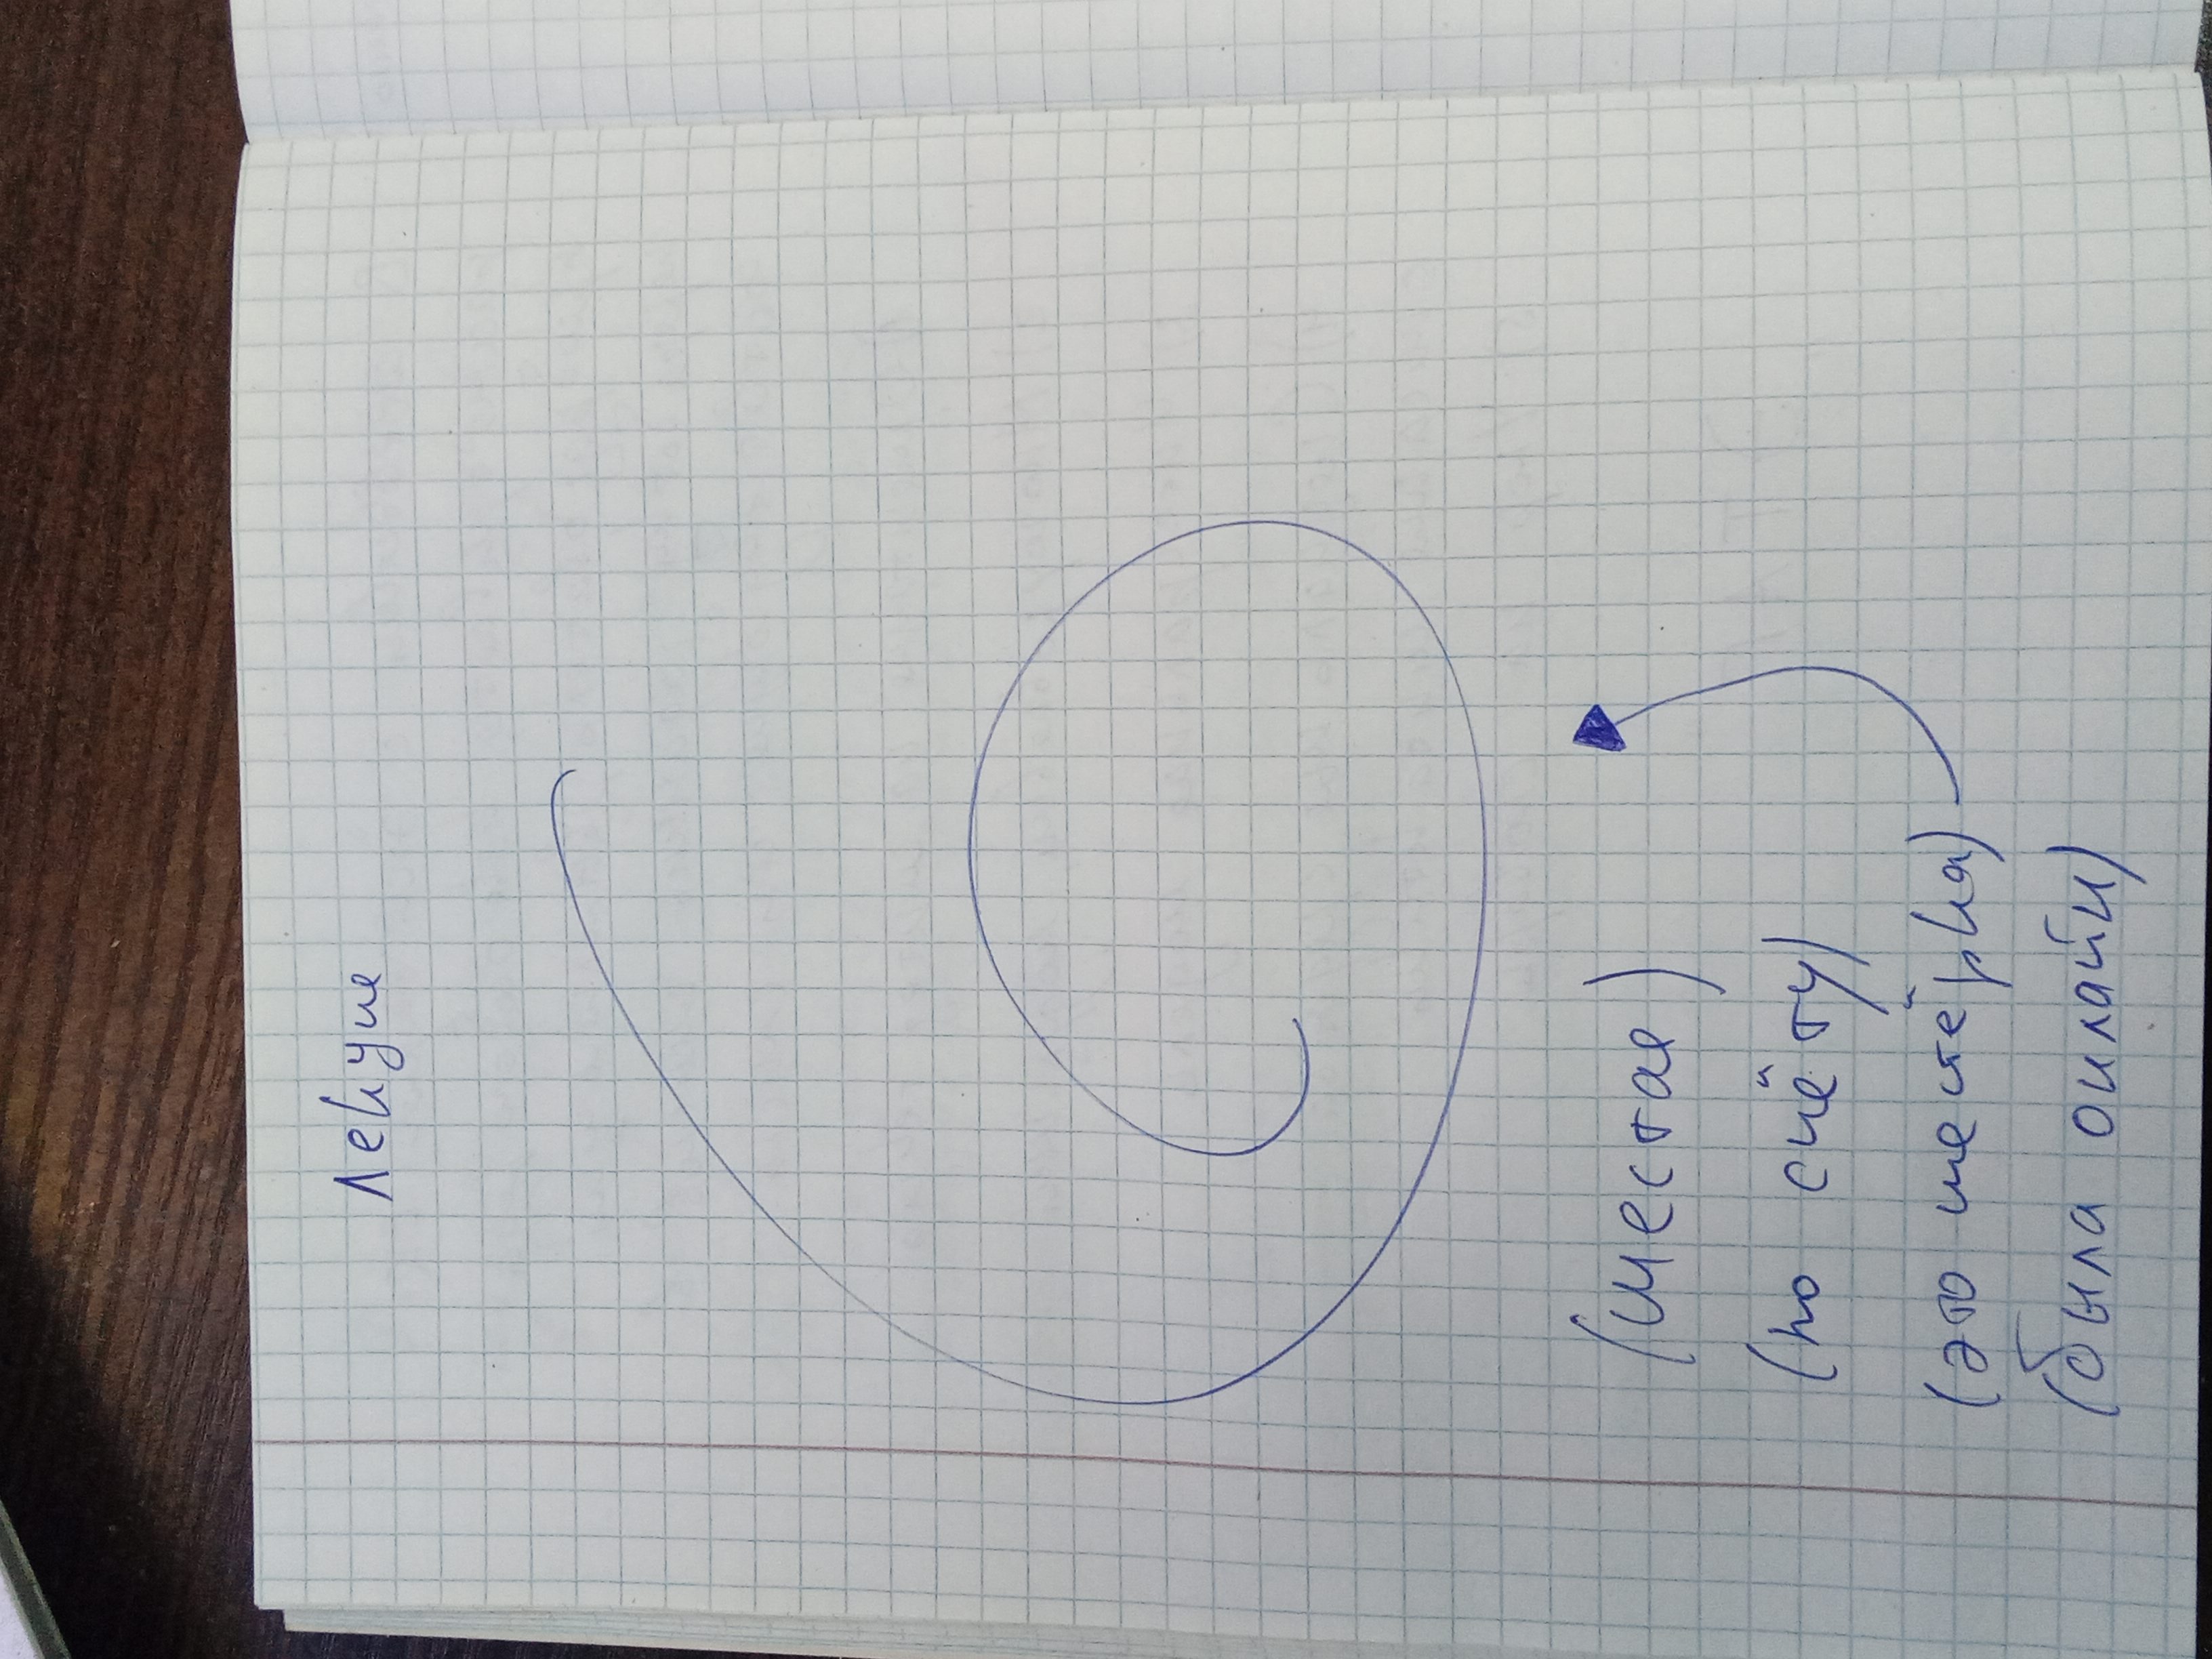 Лекция
6
(шестая)
(по счёту)
(это шестёрка)
(была онлайн)